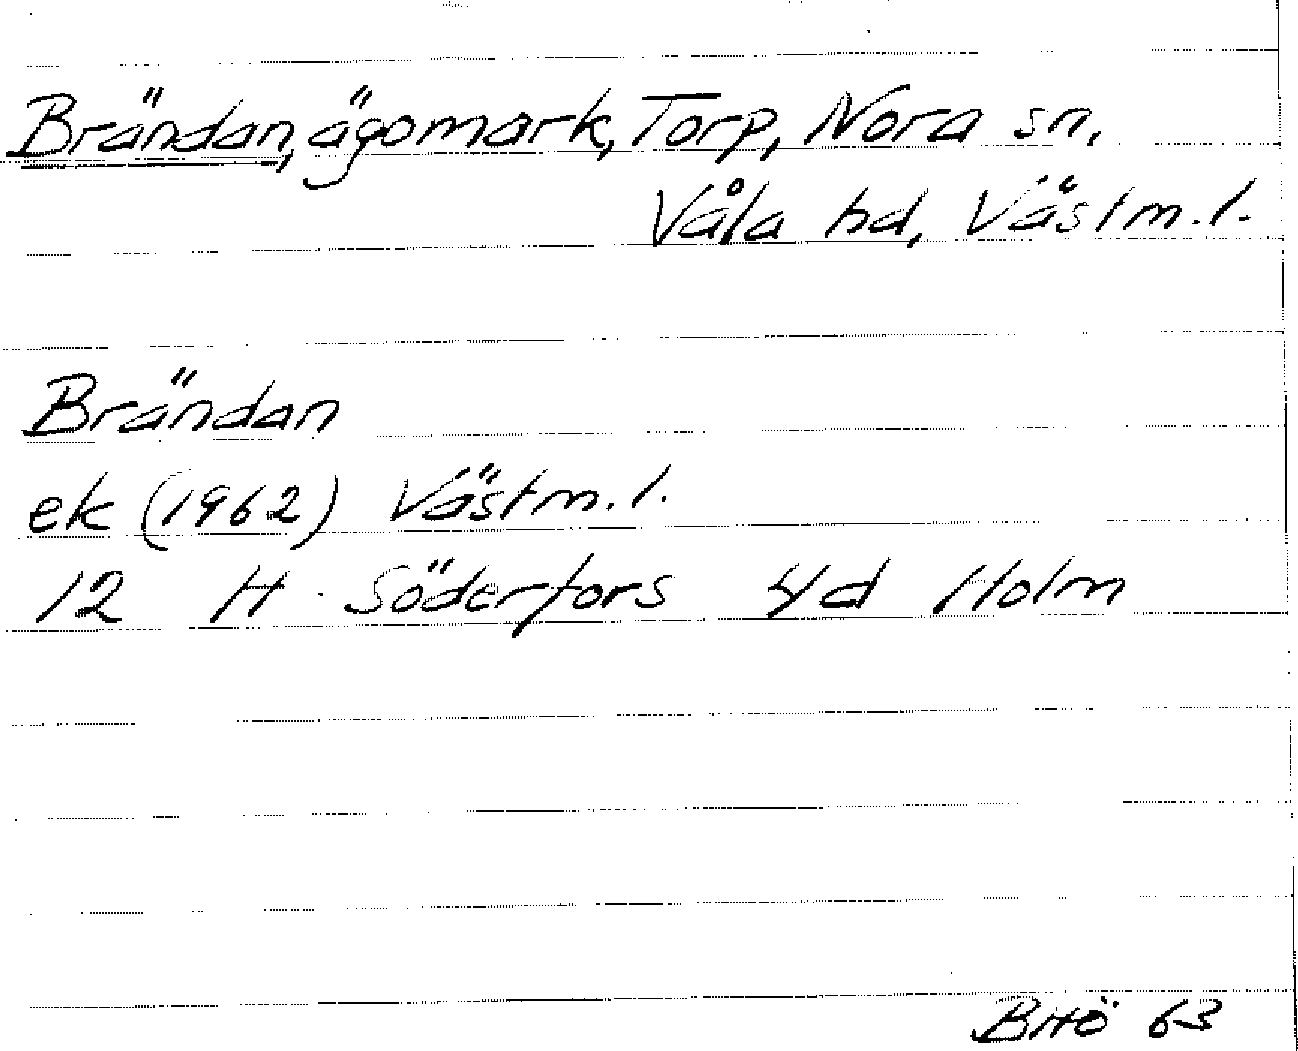 Brändan, ägomark, Torp, Nora sn,
Våla hd, Västm. l.
Brändan
ek (1962) Västm. l.
12 H Söderfors 4d Holm
BHÖ 63